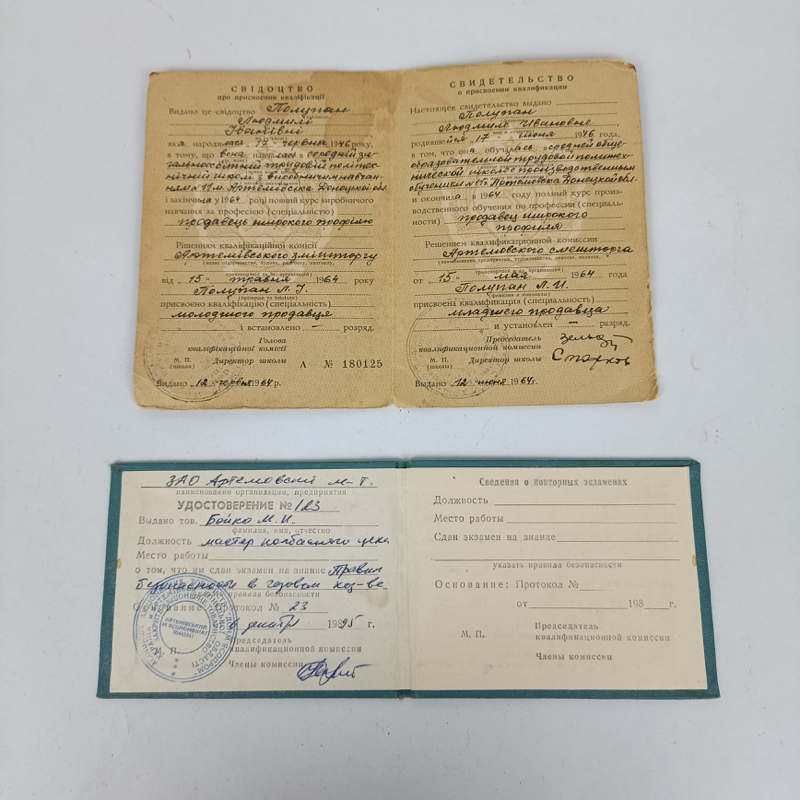 СВІДОЦТВО
про присвоєння кваліфікації
Видано це свідоцтво Полупан
Людмилі
Іванівні
яка народилась 17 червня 1946 року,
в тому, що вона навчалась в середній за-
гальноосвітній трудовій політех-
нічній школі з виробничим навчан-
ням № 11 м. Артемівська Донецкої обл.
і закінчила у 1964 році повний курс виробничого
навчання за професією (спеціальністю)
продавець широкого профілю
Рішенням кваліфікаційної комісії
Артемівського змішторгу
від „15" травня 1964 року
Полупан Л. І.
(прізвище та ініціали)
присвоєно кваліфікацію (спеціальність)
молодшого продавця
і встановлено — розряд.
Голова
кваліфікаційної комісії
М. П. Директор школи А № 180125
(школи)
Видано „12" червня 1964 р.
СВИДЕТЕЛЬСТВО
о присвоении квалификации
Настоящее свидетельство выдано
Полупан
Людмиле Ивановне
родившейся 17 июня 1946 года,
в том, что она обучалась в средней обще-
образовательной трудовой политех-
нической школе с производственным
обучением № 11 г. Артемовска Донецкой обл.
и окончила в 1964 году полный курс произ-
водственного обучения по профессии (специаль-
ности) продавец широкого
профиля
Решением квалификационной комиссии
Артемовского смешторга
от „15" мая 1964 года
Полупан Л. И.
(фамилия и инициалы)
присвоена квалификация (специальность)
младшего продавца
и установлен — разряд.
Председатель
квалификационной комиссии
М. П. Директор школы
(школы)
Выдано „12" июня 1964 г.
ЗАО Артемовский м-т.
наименование организации, предприятия
УДОСТОВЕРЕНИЕ № 123
Выдано тов. Бойко М. И.
фамилия, имя, отчество
Должность мастер колбасного цеха
Место работы
о том, что он сдал экзамен на знание Правил
безопасности в газовом хоз-ве
Основание: Протокол № 23
6 декабря 1995 г.
Председатель
М. П. квалификационной комиссии
Члены комиссии
Сведения о повторных экзаменах
Должность
Место работы
Сдан экзамен на знание
указать правила безопасности
Основание: Протокол №
от 198 г.
М. П. Председатель
квалификационной комиссии
Члены комиссии